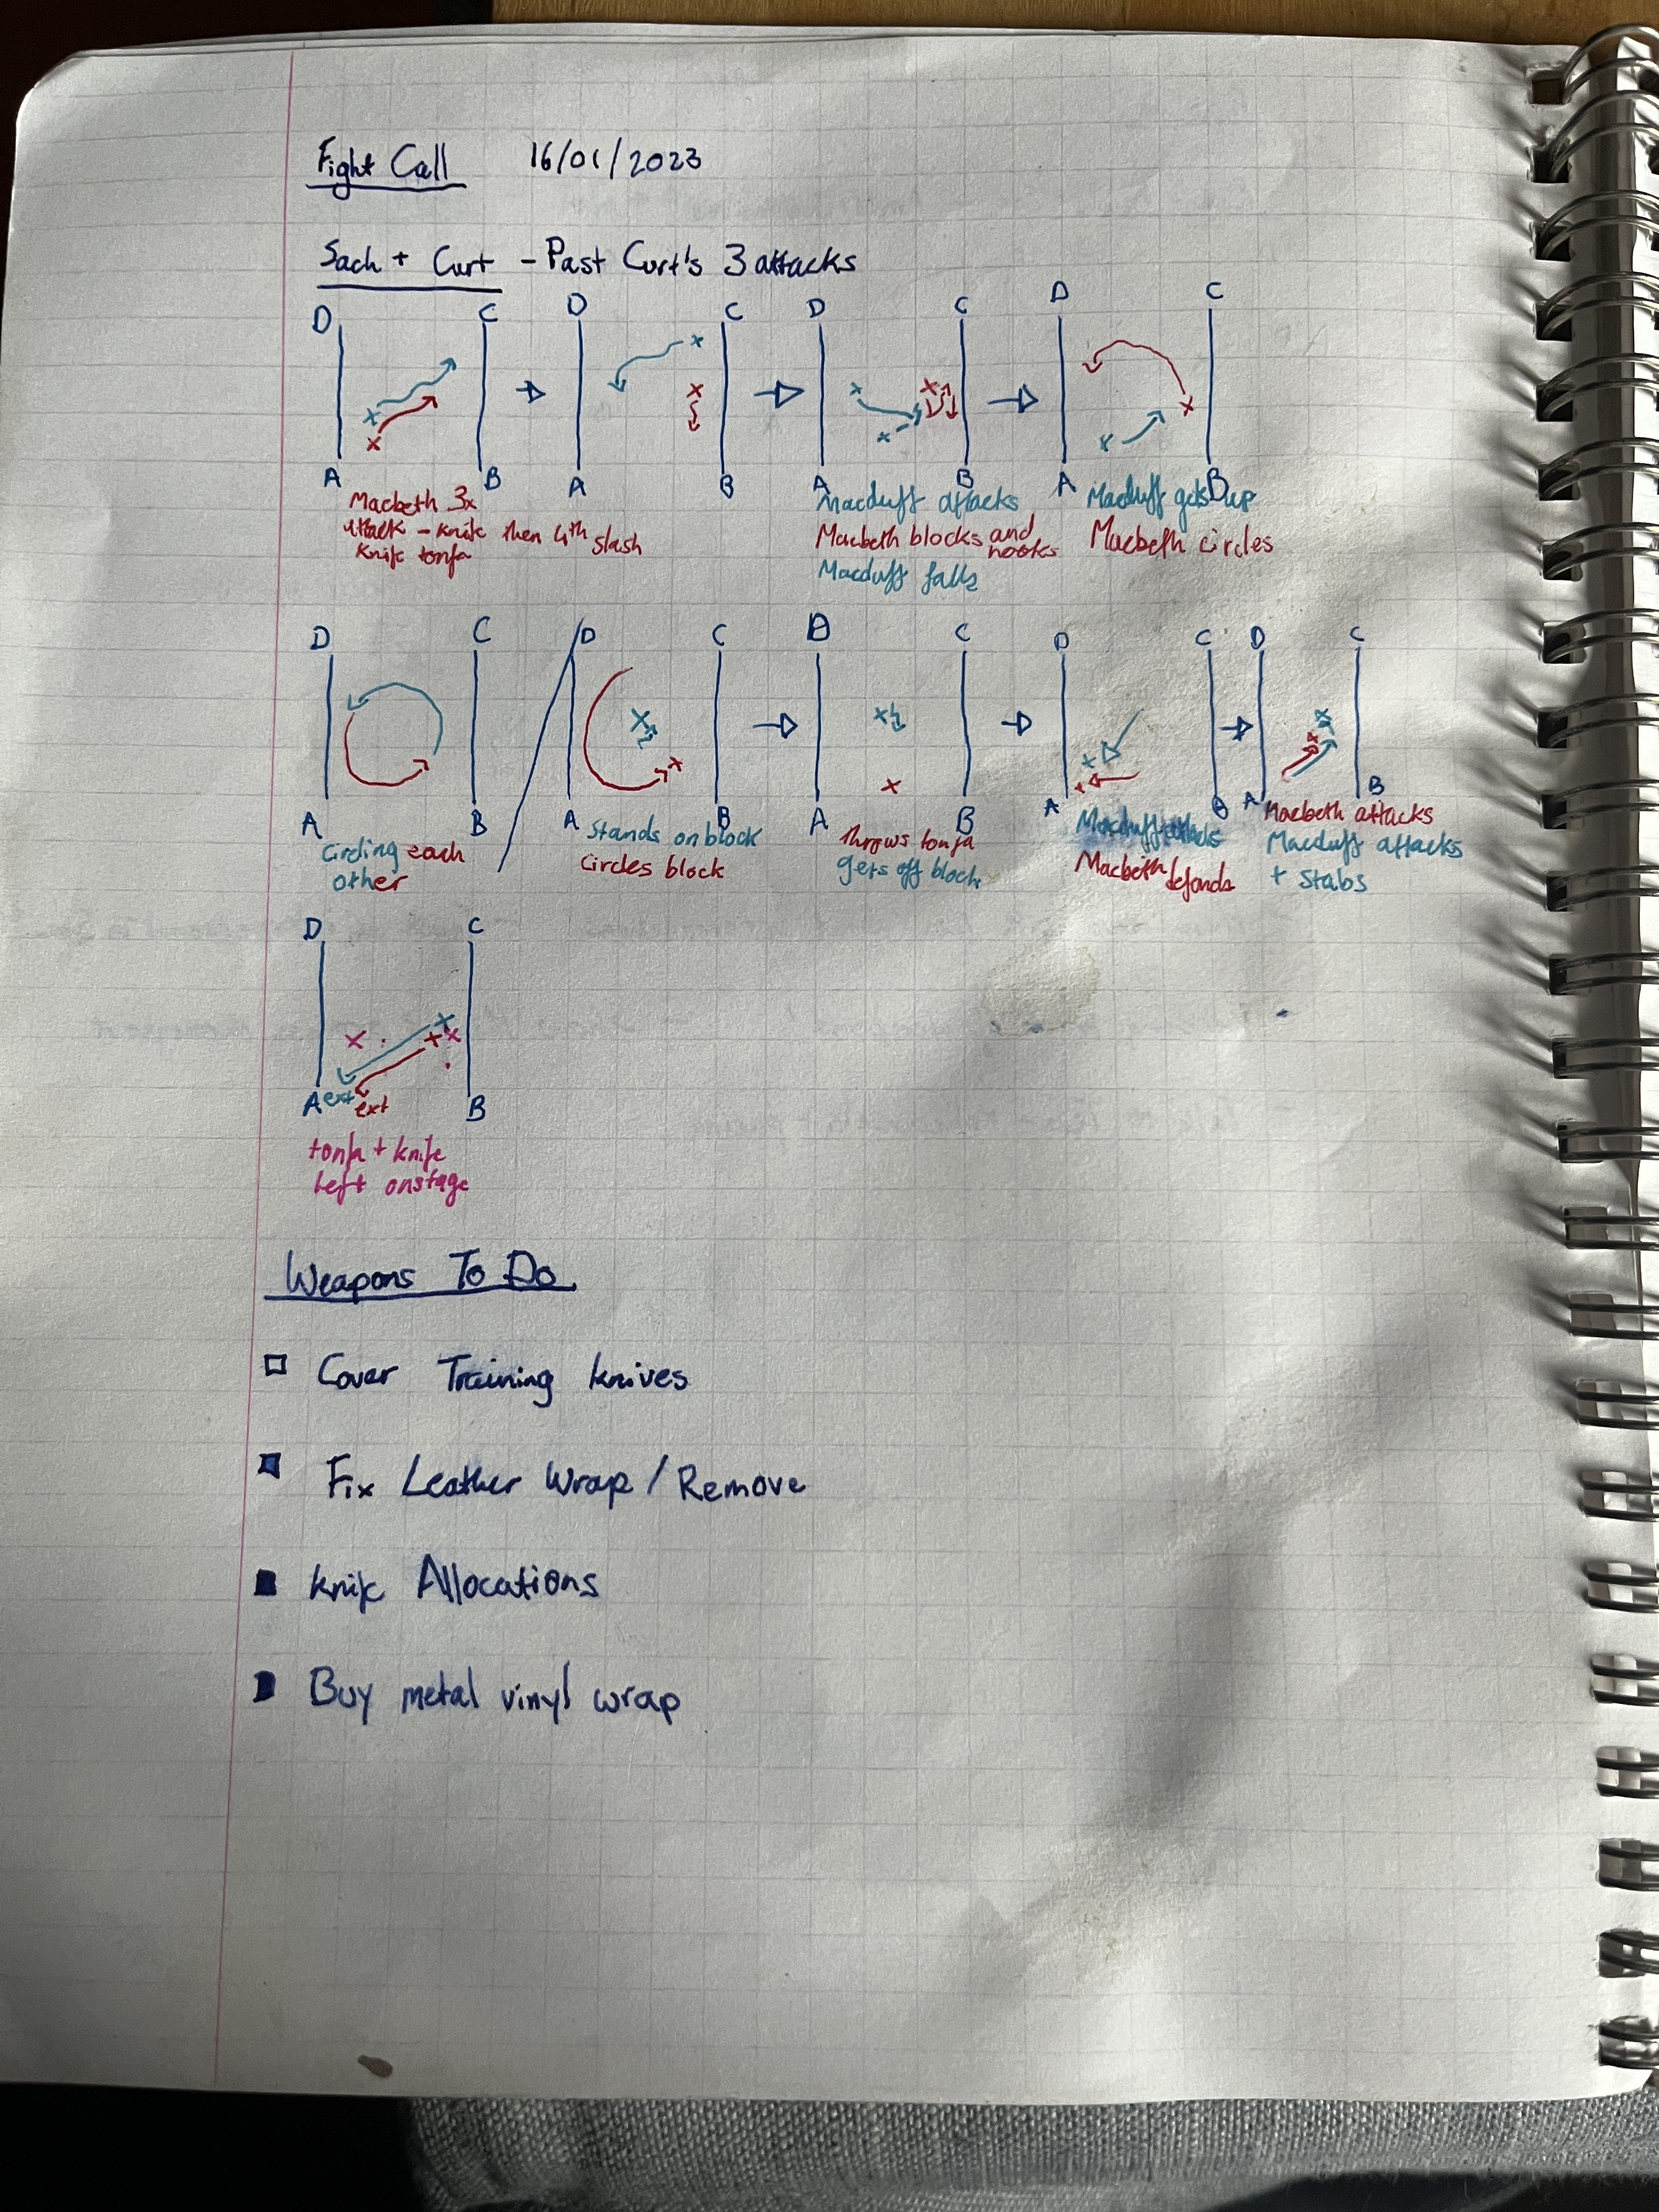 Fight Call 16/01/2023
Sach + Curt - Past Curt's 3 attacks
D C D C D C D C
A B A B A B A B
Macbeth 3x
attack - knife then 4th slash
knife tonfa
Macduff attacks
Macbeth blocks and hooks
Macduff falls
Macduff gets up
Macbeth circles
D C D C D C D C D C
A B A B A B A B A B
circling each
other
Stands on block
circles block
throws tonfa
gets off block
Macduff attacks
Macbeth defends
Macbeth attacks
Macduff attacks
+ stabs
D C
A ext ext B
tonfa + knife
left onstage
Weapons To Do
Cover Training knives
Fix Leather Wrap / Remove
knife Allocations
Buy metal vinyl wrap